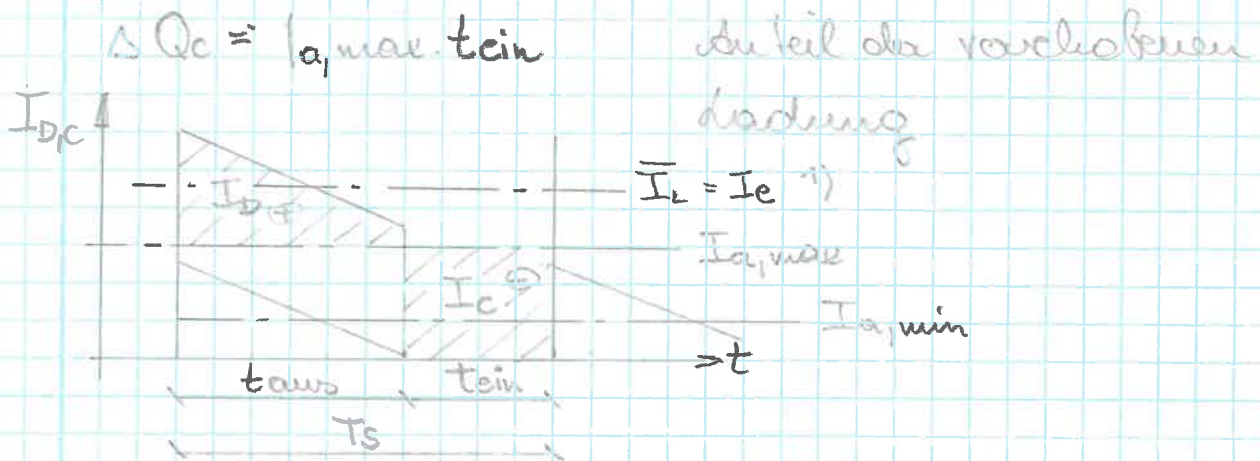 Δ Qc = Ia,max · tein Anteil der verschobenen
Ladung
ID,C
I̅L = Ie 1)
ID ⊕
Ia,max
IC ⊖
Ia,min
t
taus tein
Ts